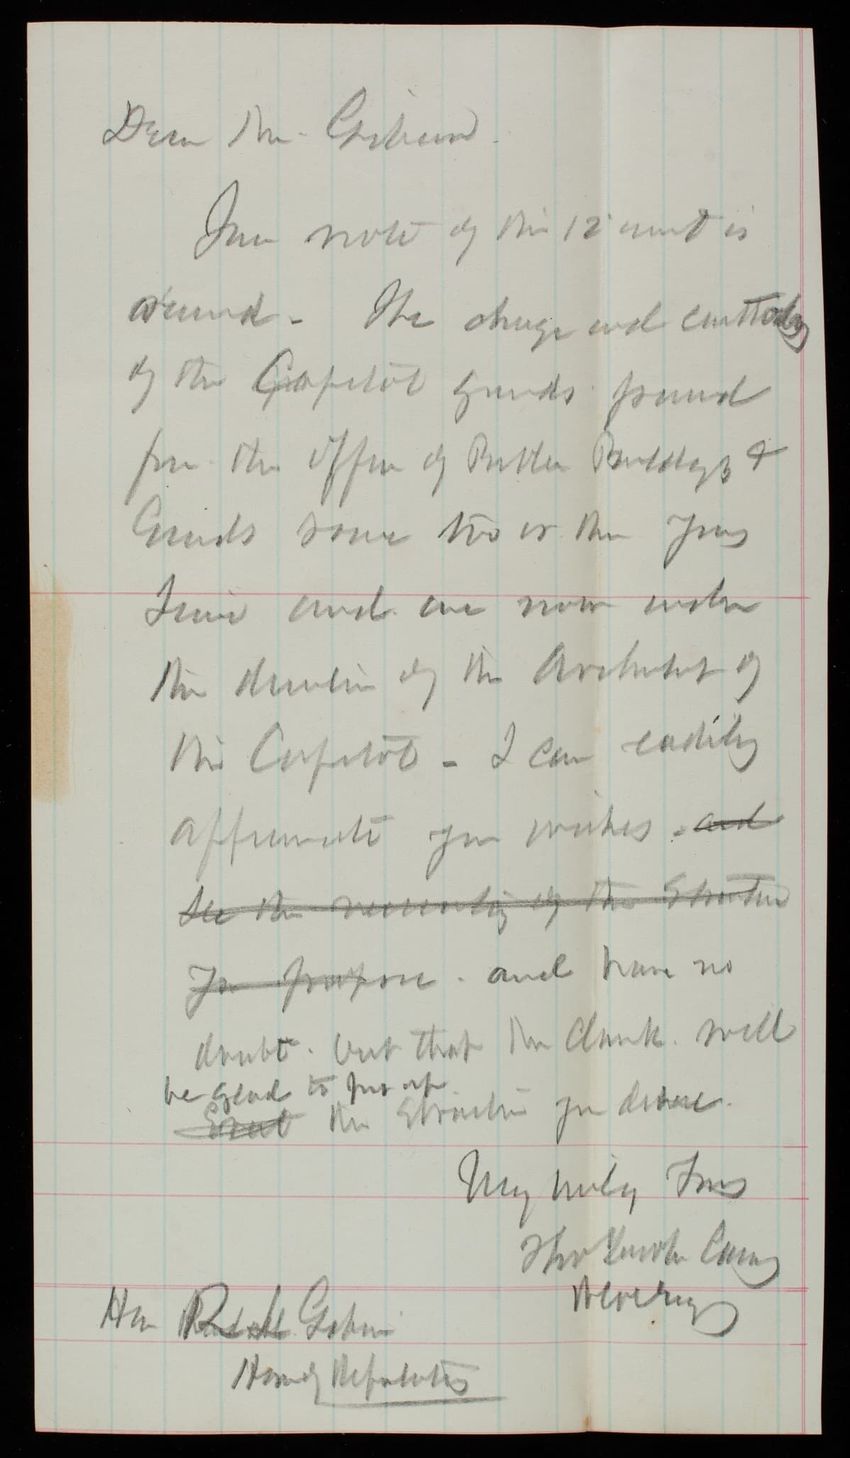 Dear Mr. Gibson.
Your note of the 12 inst is
received - The charge and custody
of the Capitol grounds passed
from the Office of Public Buildings &
Grounds some two or three years
since and are now under
the direction of the Architect of
the Capitol - I can readily
appreciate your wishes. and
see the necessity of the structure
you propose. and have no
doubt. but that Mr Clark. will
be glad to put up
the structure you desire.
Very truly Yours
Thos Lincoln Casey
Hon Gibson
House of Representatives